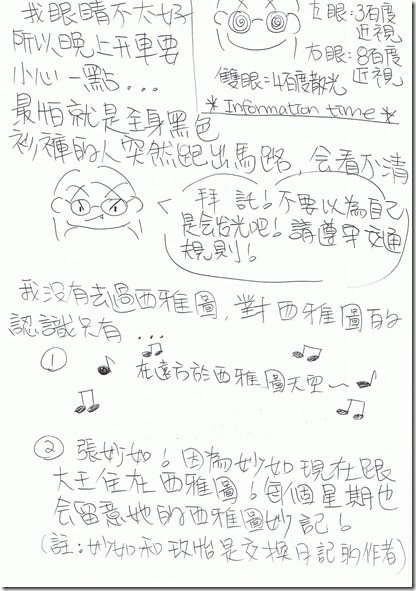 我眼睛不太好
所以晚上开車要
小心一點...
左眼:3百度
近視
右眼:8百度
近視
雙眼:4百度散光
*Information time*
最怕就是全身黑色
衫褲的人突然跑出馬路,会看不清
拜託!不要以為自己
是会發光吧!請遵守交通
規則!
我沒有去過西雅圖,對西雅圖的
認識只有...
① 在遠方於西雅圖天空~
② 張妙如!因為妙如現在跟
大王住在西雅圖!每個星期也
会留意她的西雅圖妙記!
(註:妙如和玫怡是交換日記的作者)